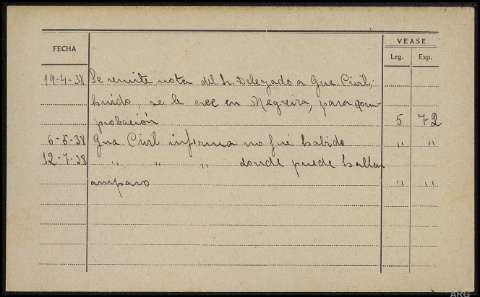 VEASE
FECHA Leg. Exp.
19-4-38 Se remite nota del Sr. Delegado a Gua Civil,
huido se le cree en Negreira, para com-
probación 5 72
6-5-38 Gua Civil informa no fue habido " "
12-7-38 " " " donde puede hallar
amparo " "
ARG